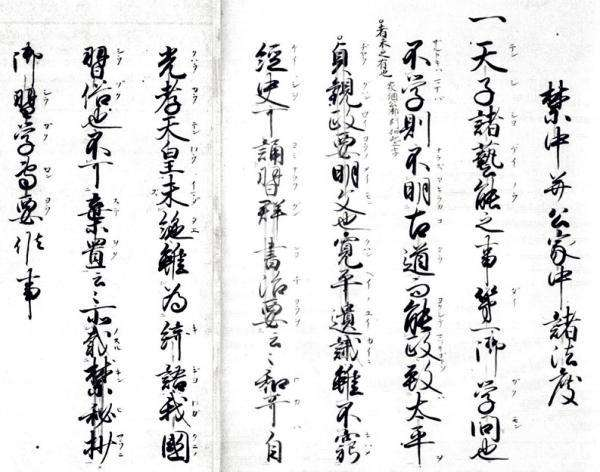 禁中并公家中諸法度
一天子諸藝能之事第一御学問也
不学則不明古道而能政致太平
者未之有也
貞観政要明文也寛平遺誡雖不窮
經史可誦習群書治要云々和哥自
光孝天皇未絶雖為綺語我國
習俗也不可棄置云々所載禁秘抄
御習学専要候事